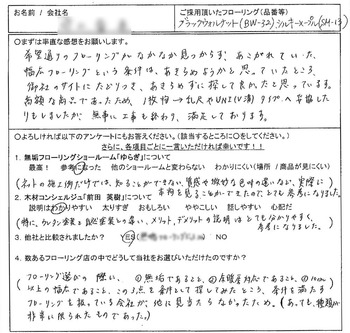 お名前 / 会社名
ご採用頂いたフローリング(品番等)
ブラックウォルナット(BW-32) シルキーメープル(SH-13)
○まずは率直な感想をお願いします。
希望通りのフローリングがなかなか見つからず、あこがれていた、
幅広フローリングという条件は、あきらめようかと思っていたところ、
御社のサイトにたどりつき、あきらめずに探して良かったと思っています。
高額な商品であったため、1枚物→乱尺やUNI(V溝)タイプへ変更した
りもしましたが、無事に工事も終わり、満足しております。
○よろしければ以下のアンケートにもお答えください。(該当するところに○をしてください。)
さらに、各項目ごとに一言いただければ幸いです!!
1. 無垢フローリングショールーム「ゆらぎ」について
最高! 参考になった 他のショールームと変わらない わかりにくい(場所 / 商品が見にくい)
(ネットの施工例だけでは、知ることができない、質感や微妙な色味の違いなど、実際に
本物を見ることができたので、とても参考になりました。)
2. 木材コンシェルジュ「前田 英樹」について
説明はわかりやすい 太りすぎ おもしろい ややこしい 話しやすい 心配だ
(特に、ウレタン塗装と自然塗装の違い、メリット、デメリットの説明はとても分かりやすく、
参考になりました。)
3. 他社と比較されましたか? YES NO
4. 数あるフローリング店の中でどうして当社をお選びいただけたのですか?
(フローリング選びの際に、①無垢であること、②床暖房対応であること、③
以上の幅広であること、この3点を条件として探してみたところ、条件を満たす
フローリングを扱っている会社が、他に見当たらなかったため。(あっても、種類が
非常に限られたものであった。)